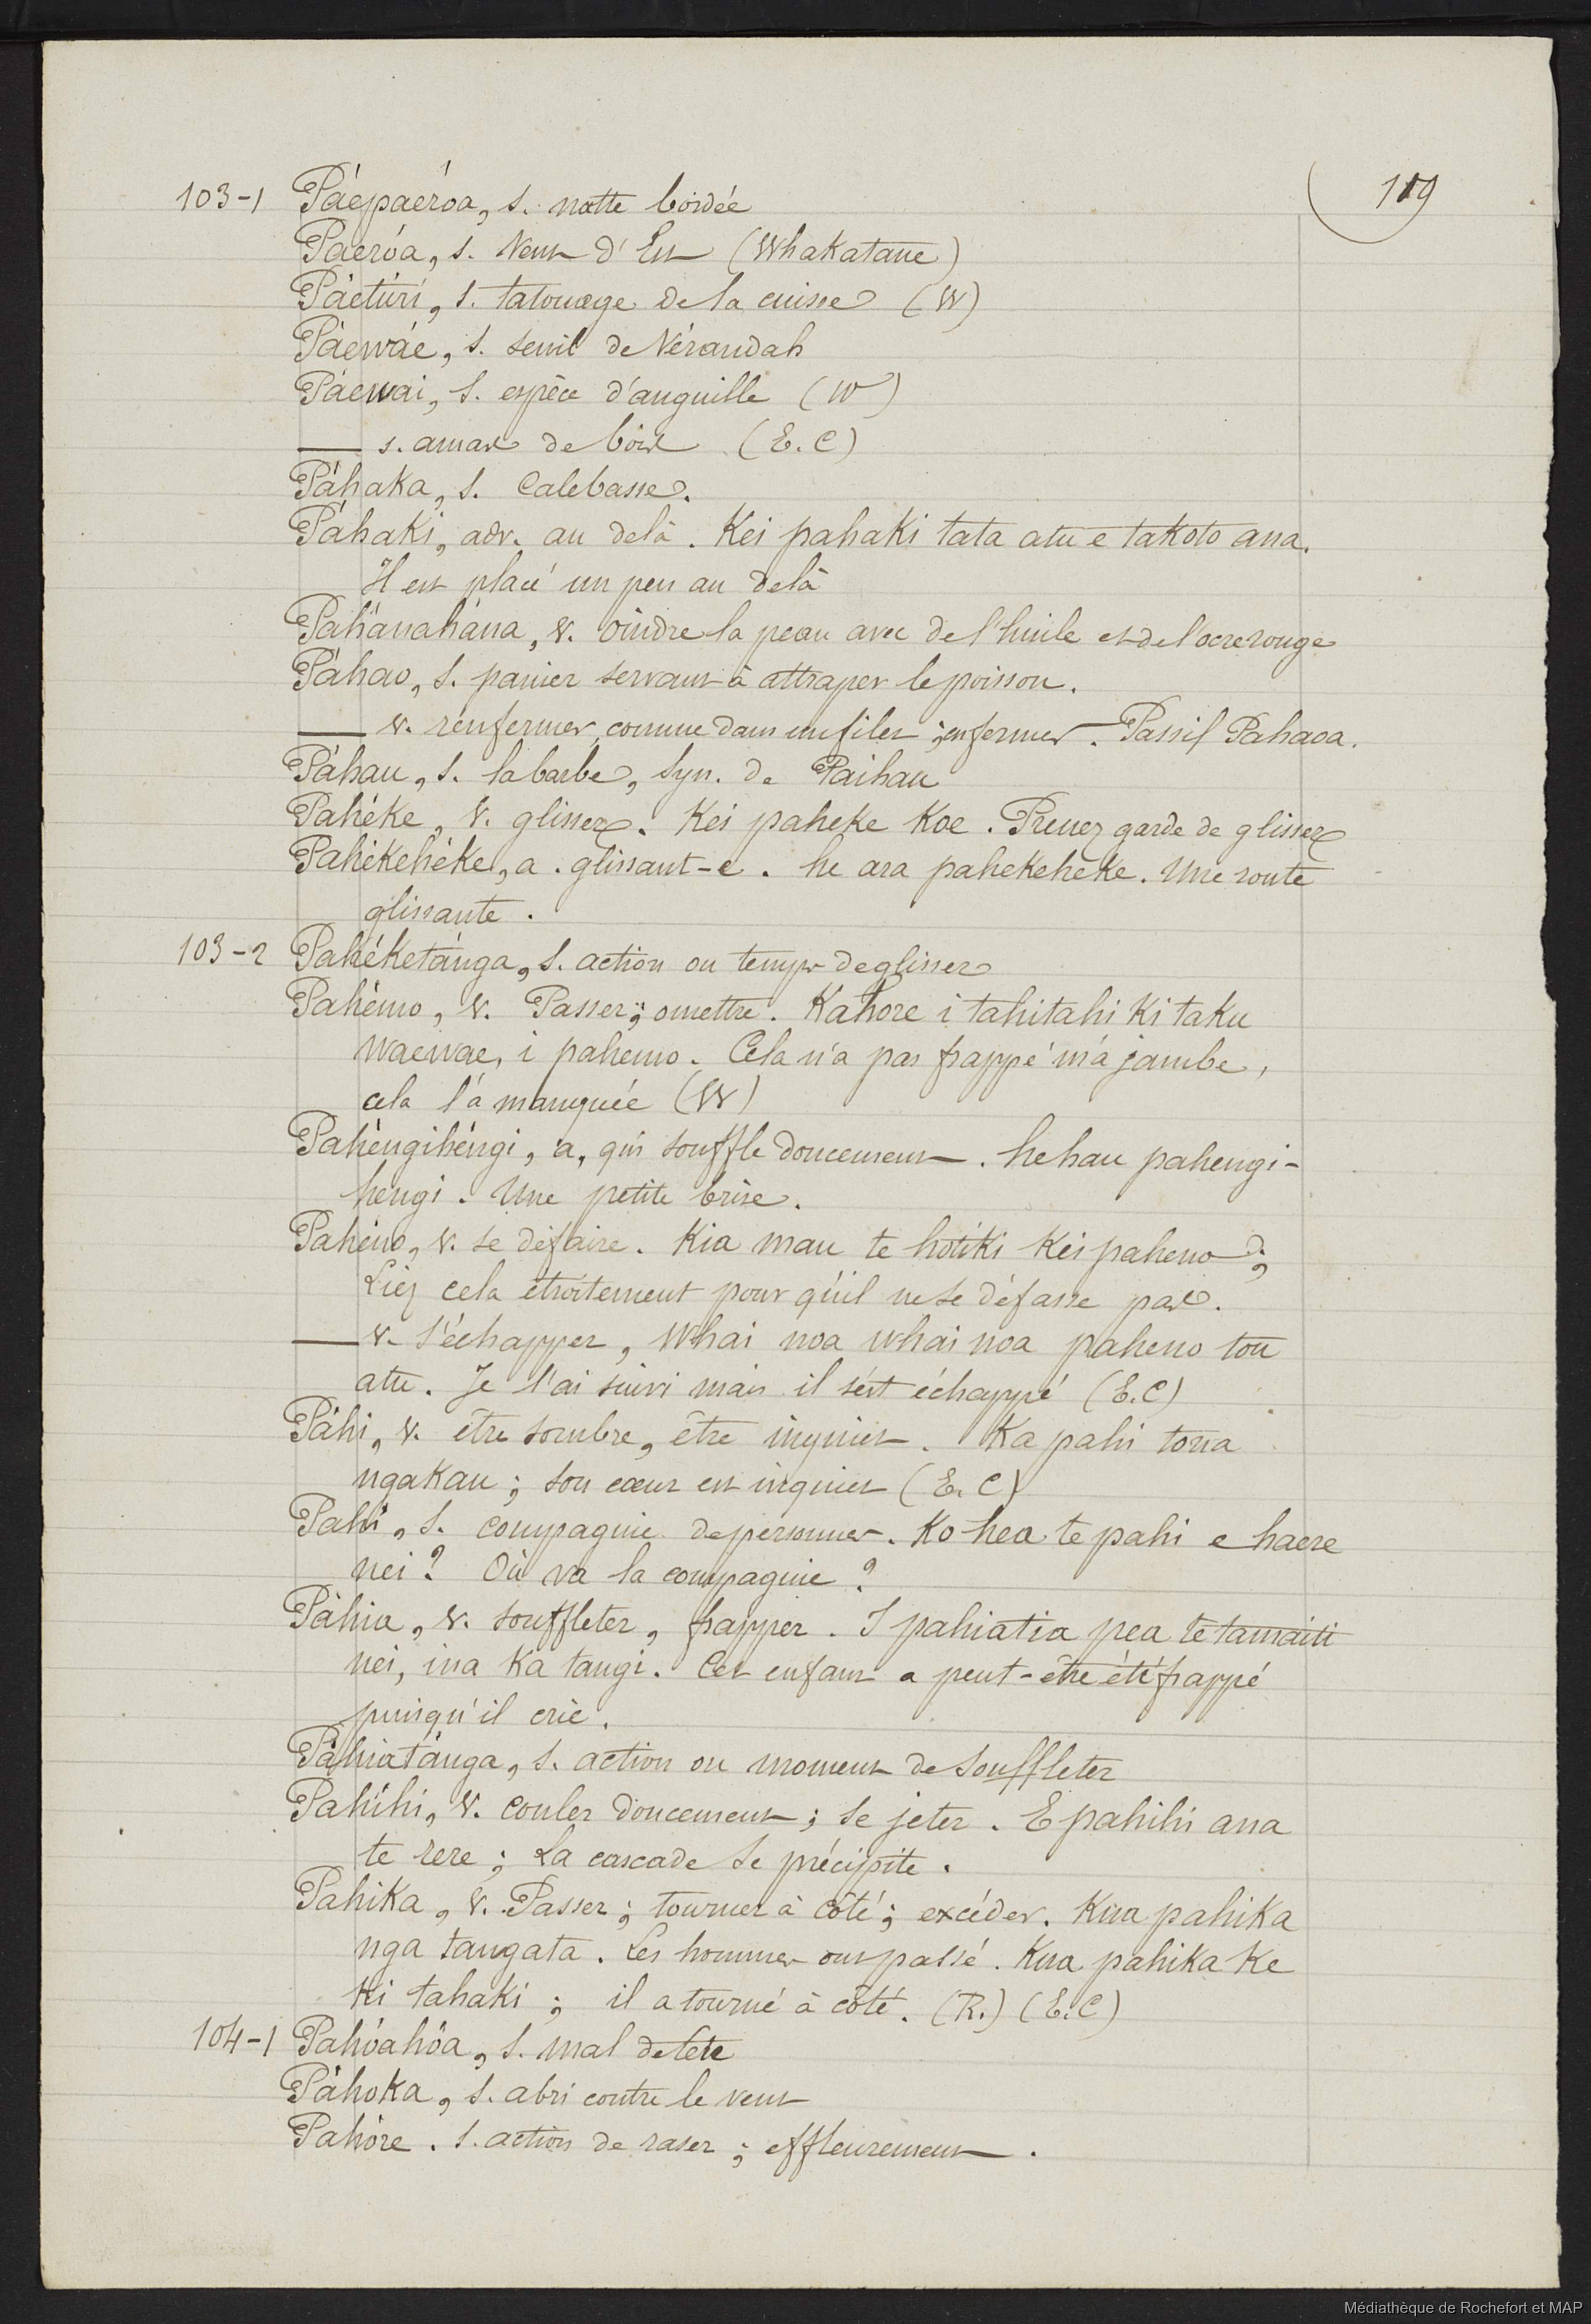 109
103-1 Páepaeróa, s. natte bordée
Paeróa, s. Vent d'Est (Whakatane)
Páetúri, s. tatouage de la cuisse (W)
Páewáe, s. seuil de Vérandah
Páewai, s. espèce d'anguille (W)
— s. amas de bois (E.C)
Páhaka, s. Calebasse.
Páhaki, adv. au delà. Kei pahaki tata atu e takoto ana.
Il est placé un peu au delà
Páhánahána, v. oindre la peau avec de l'huile et de l'ocre rouge
Páhao, s. panier servant à attraper le poisson.
— v. renfermer, comme dans un filet ; enfermer. Passif Pahaoa.
Páhau, s. la barbe, syn. de Paihau
Pahéke, v. glisser. Kei paheke Koe. Prenez garde de glisser
Pahékehéke, a. glissant-e. he ara pahekeheke. Une route
glissante.
103-2 Pahéketánga, s. action ou temps de glisser
Pahémo, v. Passer ; omettre. Kahore i tahitahi Ki taku
waewae, i pahemo. Cela n'a pas frappé má jambe,
cela l'á manquée (W)
Pahéngihéngi, a, qui souffle doucement. he hau pahengi-
hengi. Une petite brise.
Pahéno, v. se défaire. Kia mau te hótiki Kei paheno ;
Liez cela étroitement pour qu'il ne se défasse pas.
— v. s'échapper, Whai noa whai noa paheno tou
atu. Je l'ai suivi mais il s'est échappé (E.C)
Páhi, v. être sombre, être inquiet. Ka pahi tona
ngakau ; son cœur est inquiet (E.C)
Pahi, s. compagnie de personnes. Ko hea te pahi e haere
nei ? Où va la compagnie ?
Páhia, v. souffleter, frapper. I pahiatia pea te tamaiti
nei, ina Ka tangi. Cet enfant a peut-être été frappé
puisqu'il crie.
Páhiatánga, s. action ou moment de souffleter
Pahíhi, v. couler doucement ; se jeter. E pahihi ana
te rere ; La cascade se précipite.
Pahika, v. Passer ; tourner à côté ; excéder. Kua pahika
nga tangata. Les hommes ont passé. Kua pahika Ke
Ki tahaki ; il a tourné à côté. (R.) (E.C)
104-1 Pahóahóa, s. mal de tete
Páhoka, s. abri contre le vent
Pahóre. s. action de raser ; effleurement.
Médiathèque de Rochefort et MAP